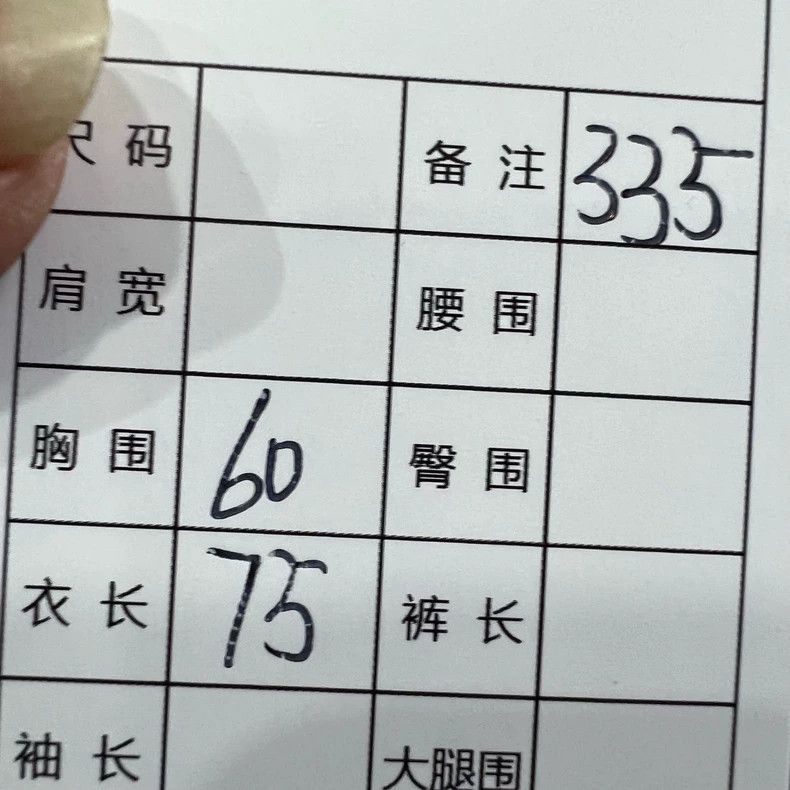 尺 码 备 注 335
肩 宽 腰 围
胸 围 60 臀 围
衣 长 75 裤 长
袖 长 大腿围